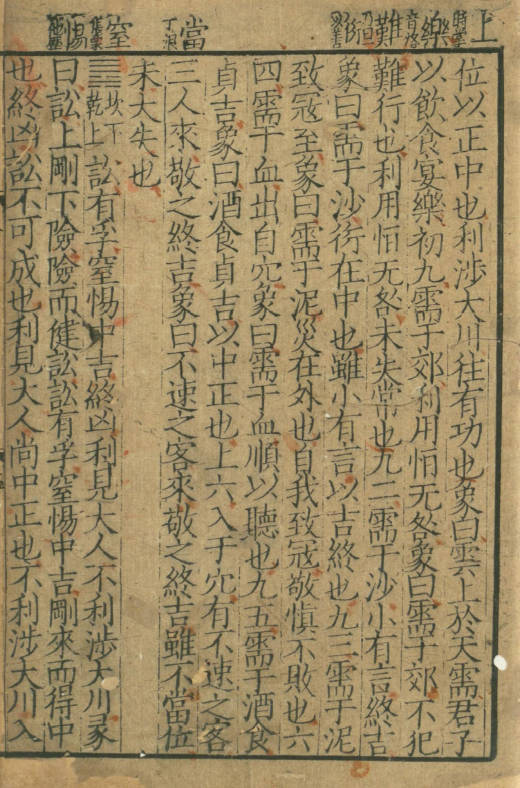 上 時掌
樂 音洛
難 乃旦
衍 以善
當 丁浪
窒 張栗
惕 他歷
位以正中也利涉大川往有功也象曰雲上於天需君子
以飲食宴樂初九需于郊利用恒无咎象曰需于郊不犯
難行也利用恒无咎未失常也九二需于沙小有言終吉
象曰需于沙衍在中也雖小有言以吉終也九三需于泥
致寇至象曰需于泥災在外也自我致寇敬慎不敗也六
四需于血出自穴象曰需于血順以聽也九五需于酒食
貞吉象曰酒食貞吉以中正也上六入于穴有不速之客
三人來敬之終吉象曰不速之客來敬之終吉雖不當位
未大失也
䷅ 坎下乾上 訟有孚窒惕中吉終凶利見大人不利涉大川彖
曰訟上剛下險險而健訟訟有孚窒惕中吉剛來而得中
也終凶訟不可成也利見大人尚中正也不利涉大川入